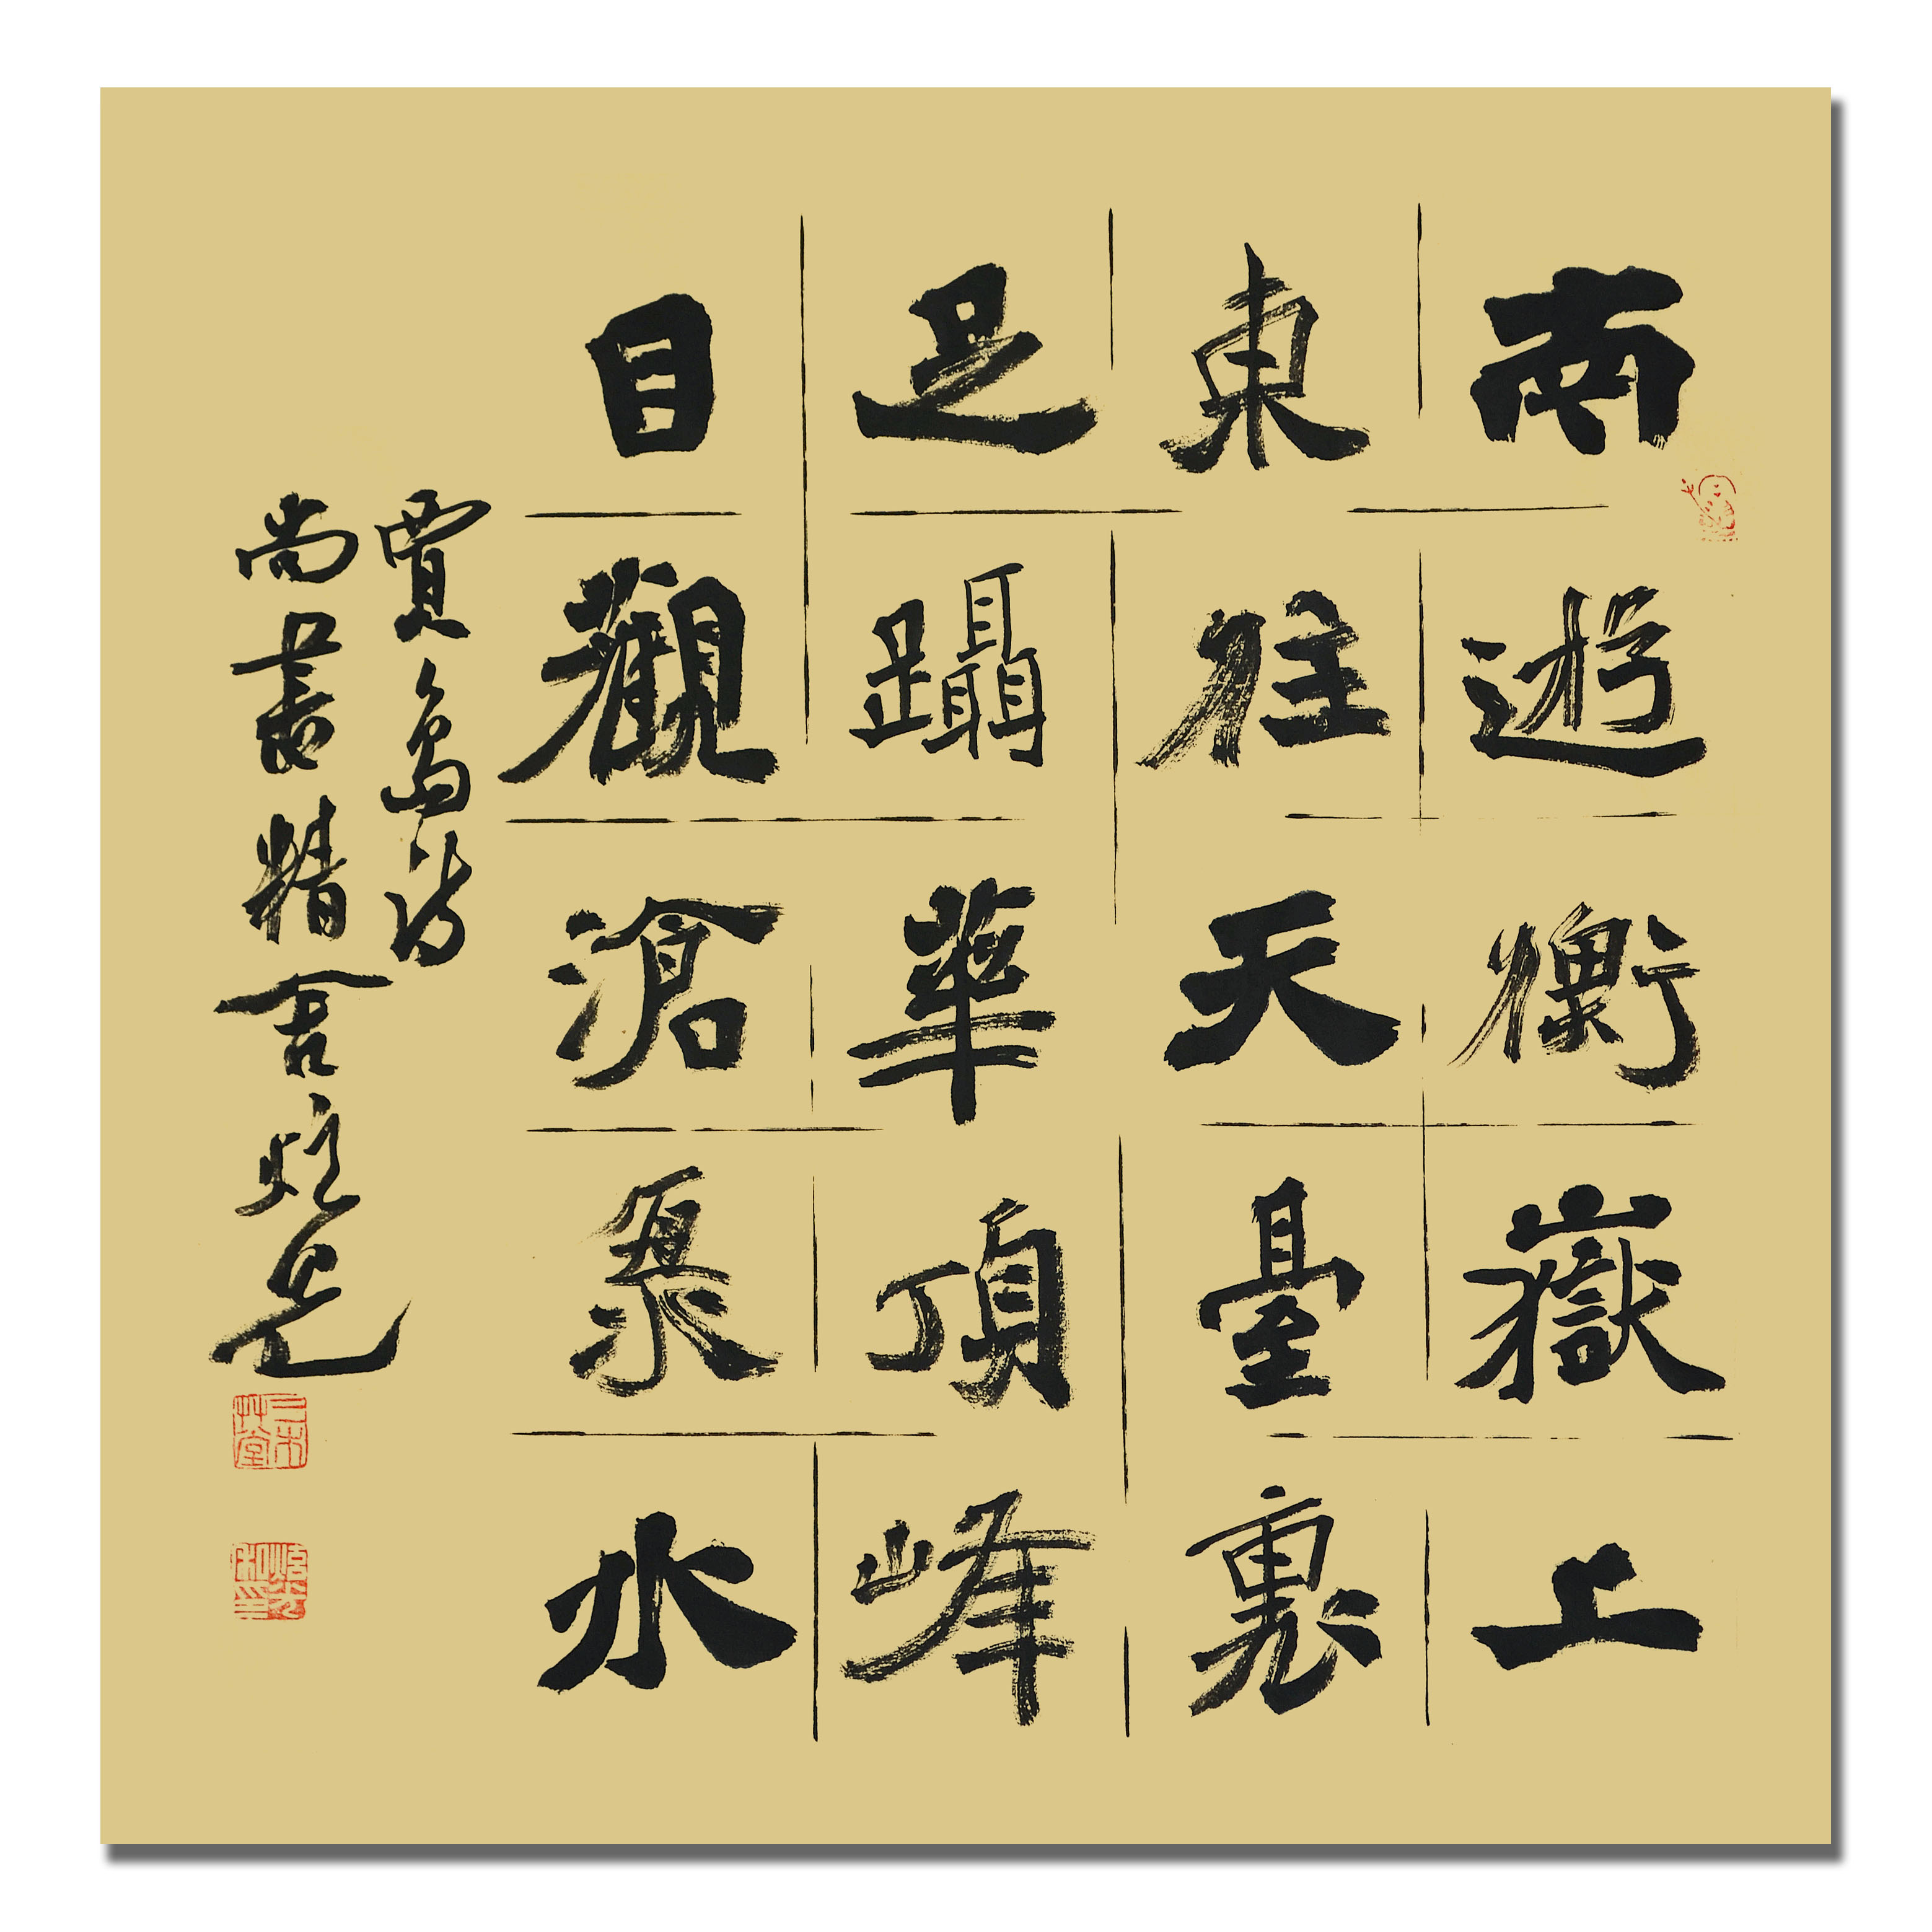 南遊衡嶽上
東往天臺裏
足躡華頂峰
目觀滄海水
賈島詩
尚書精舍炫光